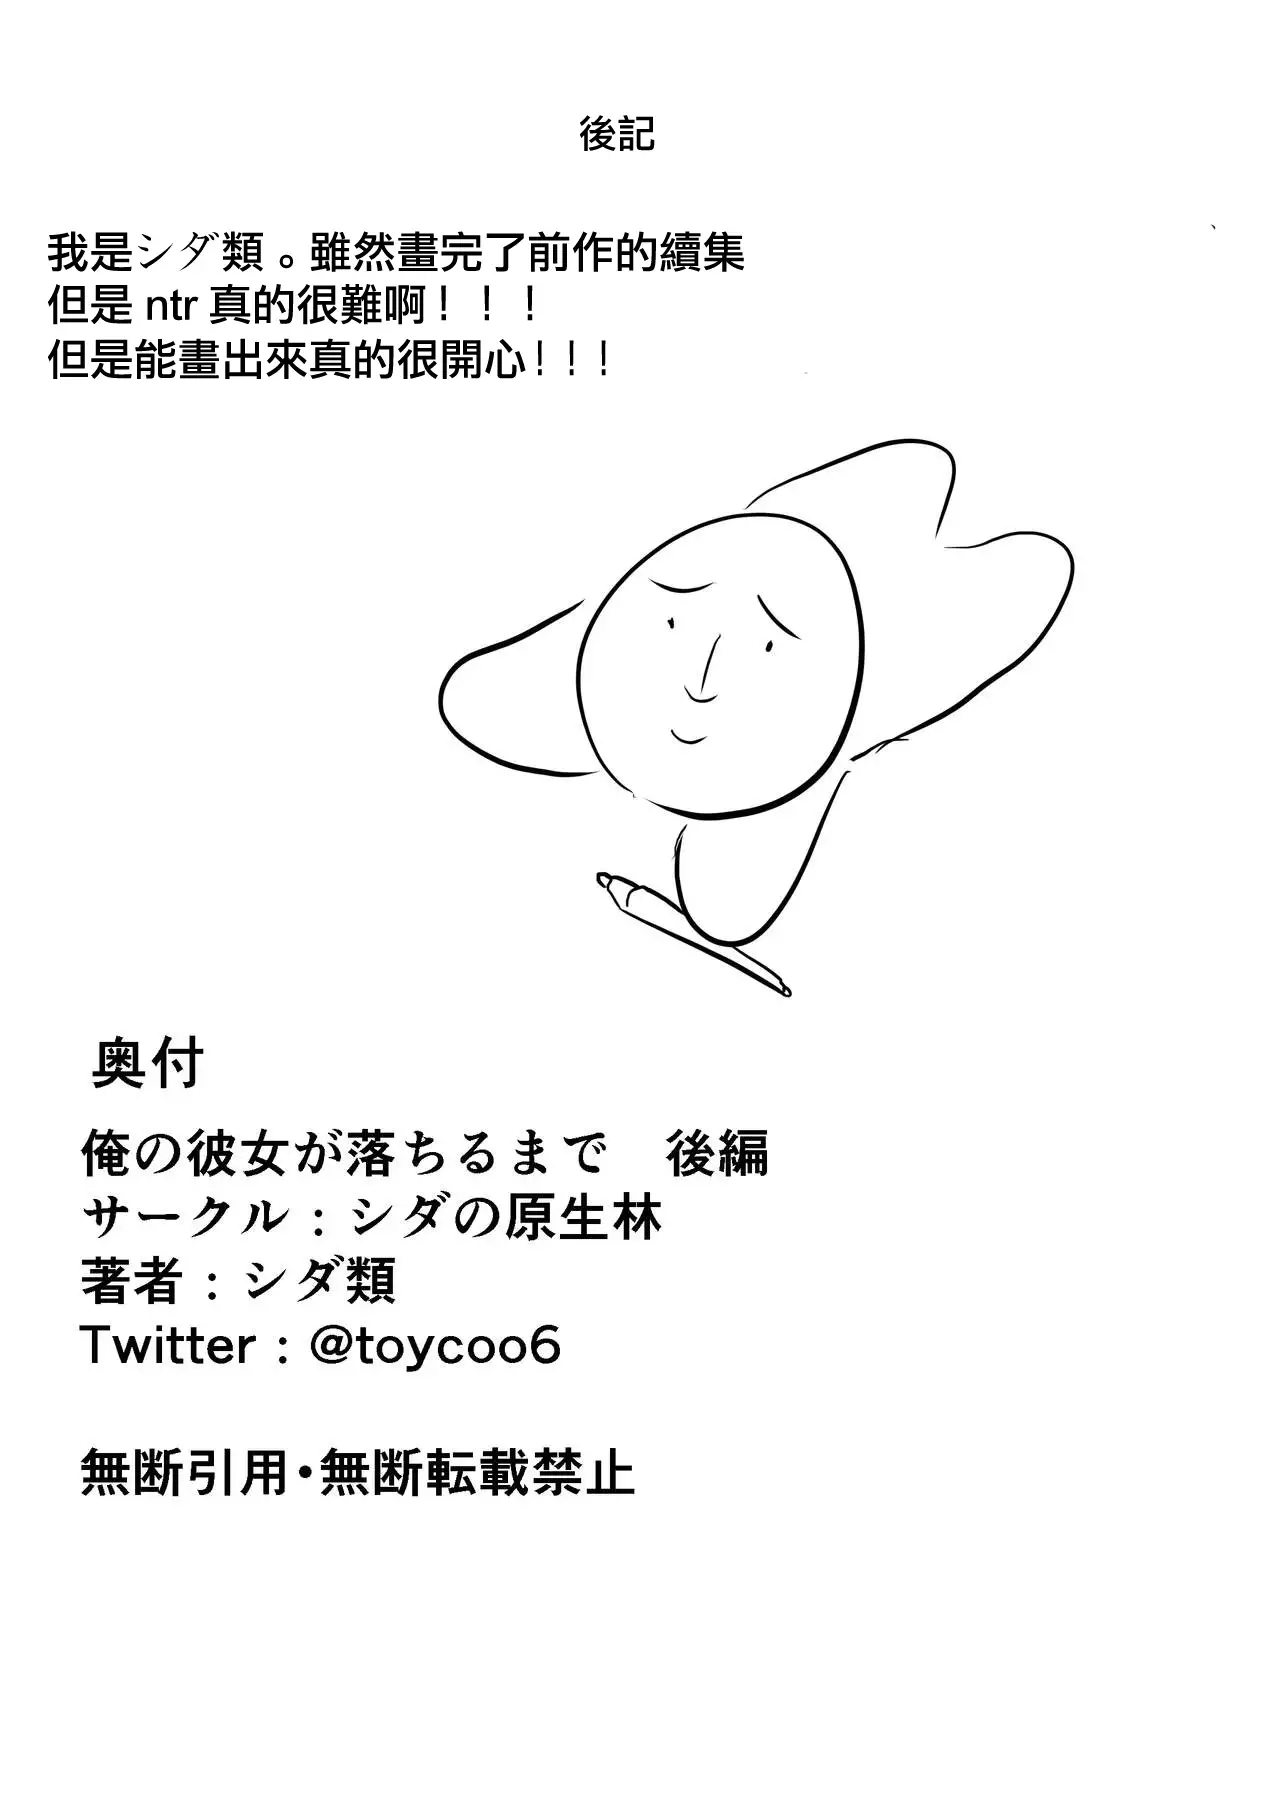 後記
我是シダ類。雖然畫完了前作的續集
但是 ntr 真的很難啊！！！
但是能畫出來真的很開心！！！
奥付
俺の彼女が落ちるまで　後編
サークル：シダの原生林
著者：シダ類
Twitter：@toycoo6
無断引用・無断転載禁止